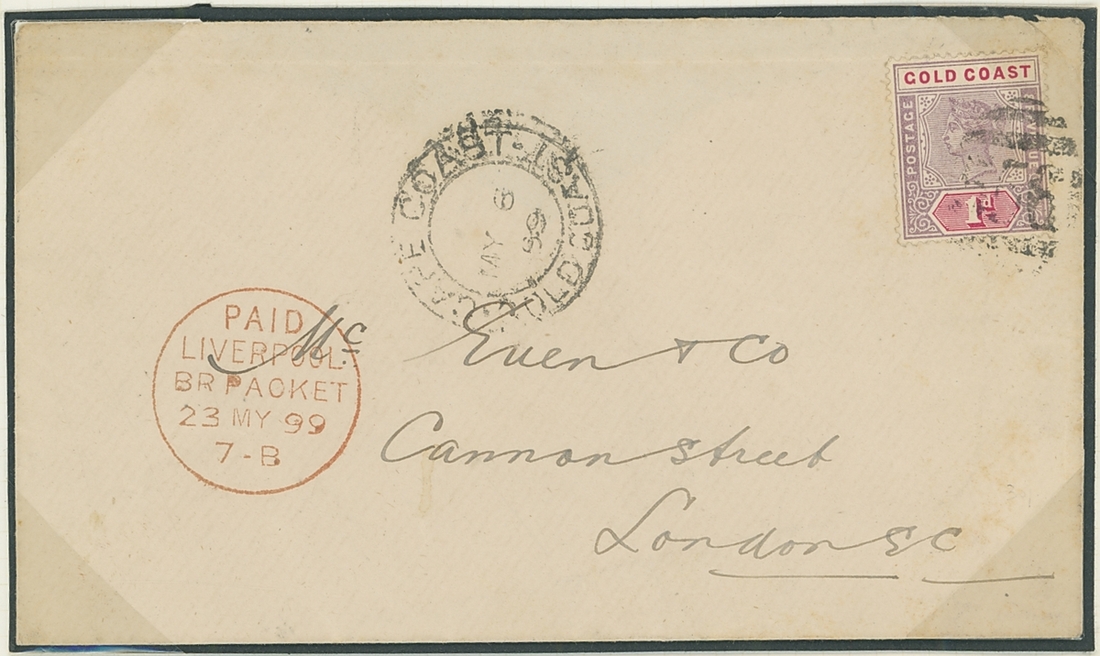 GOLD COAST
POSTAGE
1d
CAPE COAST.
GOLD COAST.
MY 99
PAID
LIVERPOOL
BR PACKET
23 MY 99
7-B
Mc Euen & Co
Cannon street
London E C